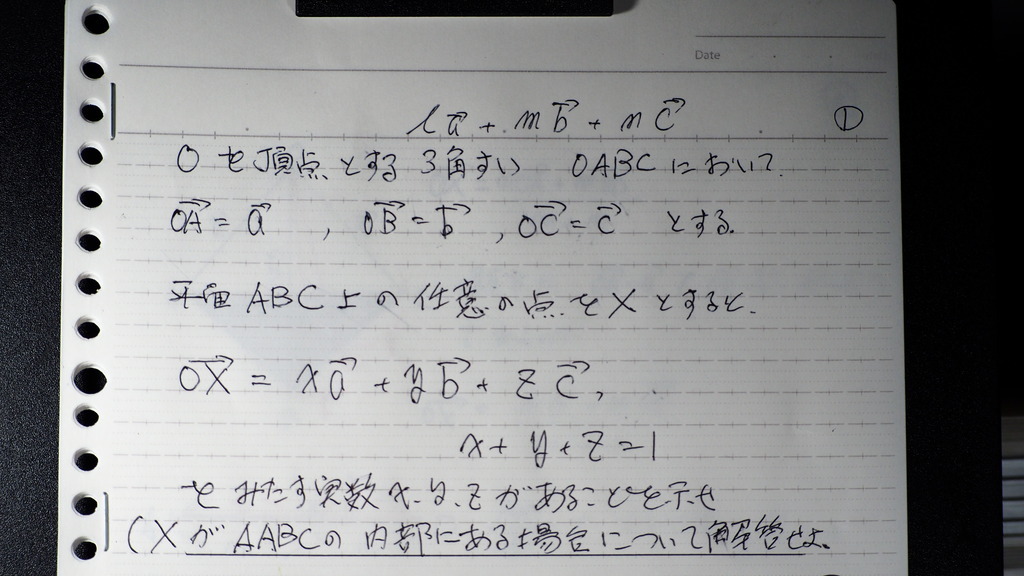 Date
l\vec{a} + m\vec{b} + n\vec{c} ①
Oを頂点とする 3角すい OABCにおいて.
\vec{OA} = \vec{a} , \vec{OB} = \vec{b} , \vec{OC} = \vec{c} とする.
平面 ABC上の 任意の点をXとすると.
\vec{OX} = x\vec{a} + y\vec{b} + z\vec{c},
x + y + z = 1
をみたす実数 x.y.z があることを示せ
(XがAABCの 内部にある場合について解答せよ.